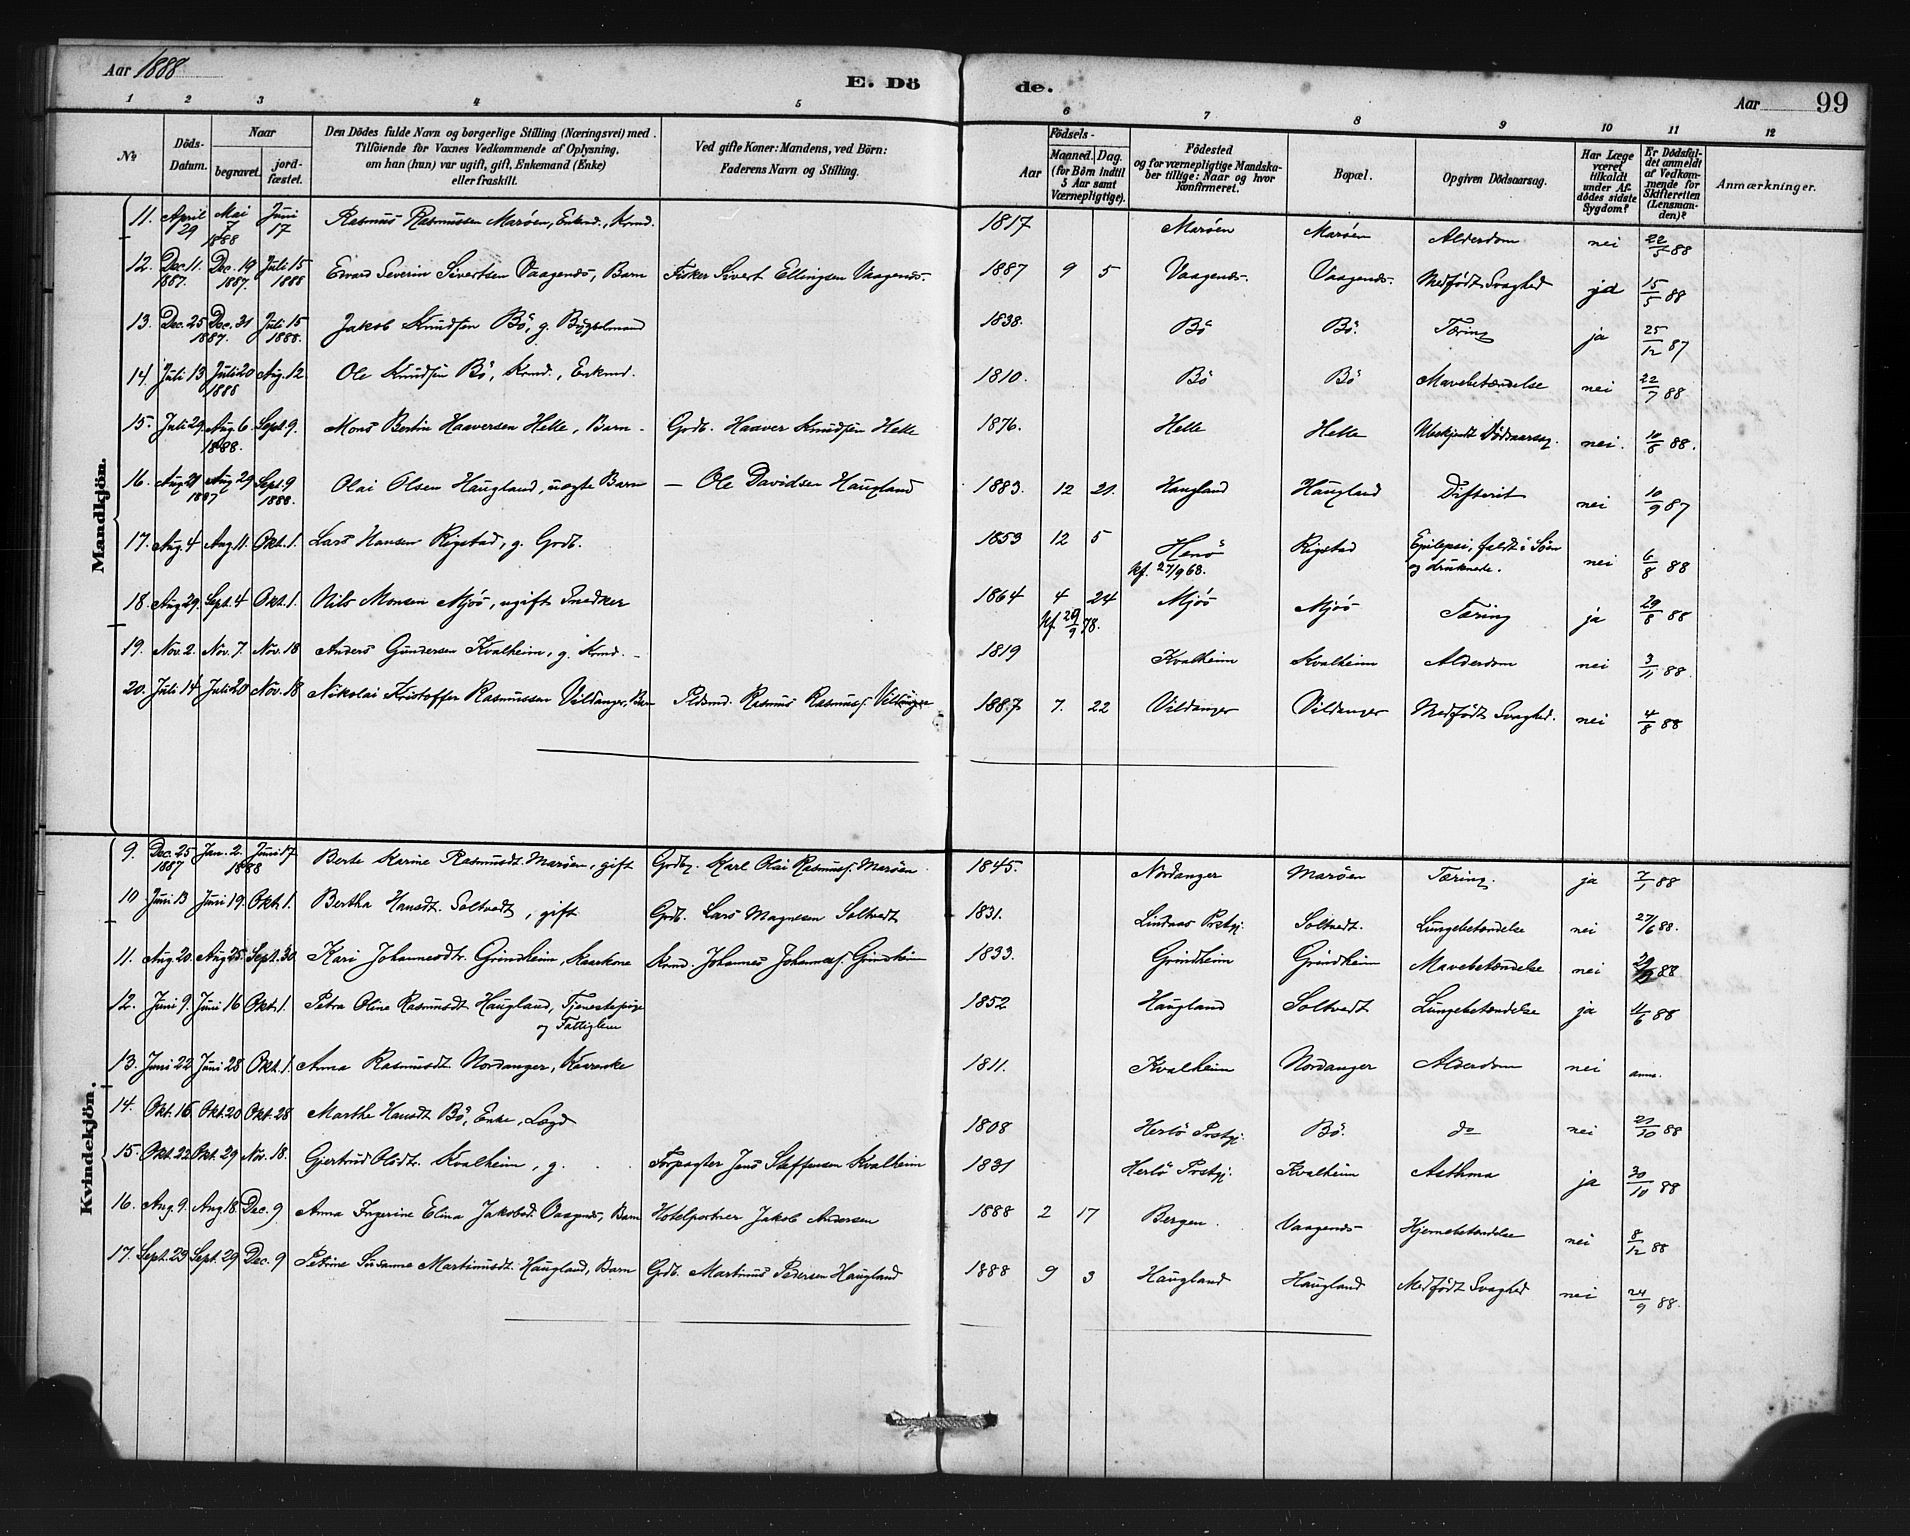 Aar 1888
E. Dö
de.
Aar
99
1 2 3 4 5 6 7 8 9 10 11 12
№
Döds-Datum.
Naar
begravet.
jord-fæstet.
Den Dödes fulde Navn og borgerlige Stilling (Næringsvei) med
Tilföiende for Voxnes Vedkommende af Oplysning,
om han (hun) var ugift, gift, Enkemand (Enke)
eller fraskilt.
Ved gifte Koner: Mandens, ved Börn:
Faderens Navn og Stilling.
Födsels-
Aar
Maaned. Dag.
(for Börn indtil
5 Aar samt
Værnepligtige).
Födested
og for værnepligtige Mandska-
ber tillige: Naar og hvor
konfirmeret.
Bopæl.
Opgiven Dödsaarsag.
Har Læge
været
tilkaldt
under Af-
dödes sidste
Sygdom?
Er Dödsfal-
det anmeldt
af Vedkom-
mende for
Skifteretten
(Lensman-
den)?
Anmærkninger.
Mandkjön.
11. April 29 Mai 7 1888 Juni 17 Rasmus Rasmussen Maröen, Enkmd., Krmd. 1817 Maröen Maröen Alderdom nei 22/5 88
12. Dec. 11. 1887. Dec. 19 1887. Juli 15 1888 Edvard Severin Sivertsen Vaagenes, Barn Fisker Sivert Ellingsen Vaagenes. 1887 9 5 Vaagenes. Vaagenes. Medfödt Svaghed ja 15/5 88
13. Dec. 25 1887. Dec. 31 Juli 15 1888. Jakob Knudsen Bö, g. Bygselmand 1838. Bö Bö. Tæring ja 25/12 87
14. Juli 13 Juli 20 1888 Aug. 12. Ole Knudsen Bö, Krmd., Enkmd. 1810. Bö Bö Mavebetændelse nei 22/7 88
15. Juli 29 Aug. 6. 1888. Sept. 9. Mons Bertin Haaversen Helle, Barn. Grdb. Haaver Knudsen Helle 1876. Helle Helle Ubekjendt Dödsaarsag. nei. 10/8 88.
16. Aug. 21 1887 Aug. 29 Sept. 9 1888. Olai Olsen Haugland, uægte Barn — Ole Davidsen Haugland 1883. 12 21. Haugland Haugland Difterit nei 10/9 87
17. Aug. 4 Aug. 11. Okt. 1. Lars Hansen Rigstad, g. Grdb. 1853 12 5 Henö kf. 27/9 68. Rigstad Epilepsi, faldt i Söen og druknede. nei 6/8 88
18. Aug. 29. Sept. 4 Okt. 1. Nils Monsen Mjös, ugift Snedker 1864 4 24 kf. 29/9 78. Mjös Mjös Tæring ja 29/8 88
19. Nov. 2. Nov. 7. Nov. 18 Anders Gundersen Kvalheim, g. Krmd. 1819 Kvalheim Kvalheim Alderdom nei 3/11 88.
20. Juli 14 Juli 20 Nov. 18 Nikolai Kristoffer Rasmussen Vildanger, Barn Pldsmd. Rasmus Rasmuss. Vildanger 1887 7. 22 Vildanger Vildanger Medfödt Svaghed. nei 4/8 88
Kvindekjön.
9. Dec. 25 1887 Jan. 2. 1888 Juni 17 Berte Karine Rasmusdt. Maröen, gift Grdbg. Karl Olai Rasmuss. Maröen 1845. Nordanger Maröen Tæring. ja 7/1 88
10 Juni 13 Juni 19. Okt. 1. Bertha Hansdt. Soltvedt, gift Grdb. Lars Magnesen Soltvedt 1831. Lindaas Prstgj. Soltvedt. Lungebetændelse nei 27/6 88.
11. Aug. 20. Aug. 25. Sept. 30. Kari Johannesdtr. Grindheim, Kaarkone Krmd. Johannes Johanness. Grindheim 1833. Grindheim Grindheim Mavebetændelse nei 88
12. Juni 9. Juni 16 Okt. 1. Petra Oline Rasmusdt. Haugland, Tjenestepige og Fattiglem 1852 Haugland Soltvedt Lungebetændelse ja 11/6 88
13. Juni 22 Juni 28 Okt. 1. Anna Rasmusdt. Nordanger, Kaarenke 1811. Kvalheim Nordanger Alderdom nei anm.
14. Okt. 16 Okt. 20 Okt. 28 Marthe Hansdt. Bö, Enke, Lægd 1808 Herlö Prstgj. Bö. do nei 21/10 88
15. Okt. 22 Okt. 29 Nov. 18. Gjertrud Olsdtr. Kvalheim, g. Forpagter Jens Steffensen Kvalheim 1831 Herlö Prstgj. Kvalheim Asthma ja 30/10 88
16. Aug. 9. Aug 18. Dec. 9 Anna Ingerine Elina Jakobsd. Vaagenes, Barn Hotelportner Jakob Andersen 1888 2 17 Bergen. Vaagenes Hjernebetændelse nei 8/12 88
17. Sept. 23 Sept. 29 Dec. 9 Petrine Susanne Martinusdt. Haugland, Barn Grdb. Martinus Pedersen Haugland 1888 9 3 Haugland Haugland Medfödt Svaghed nei 24/9 88.